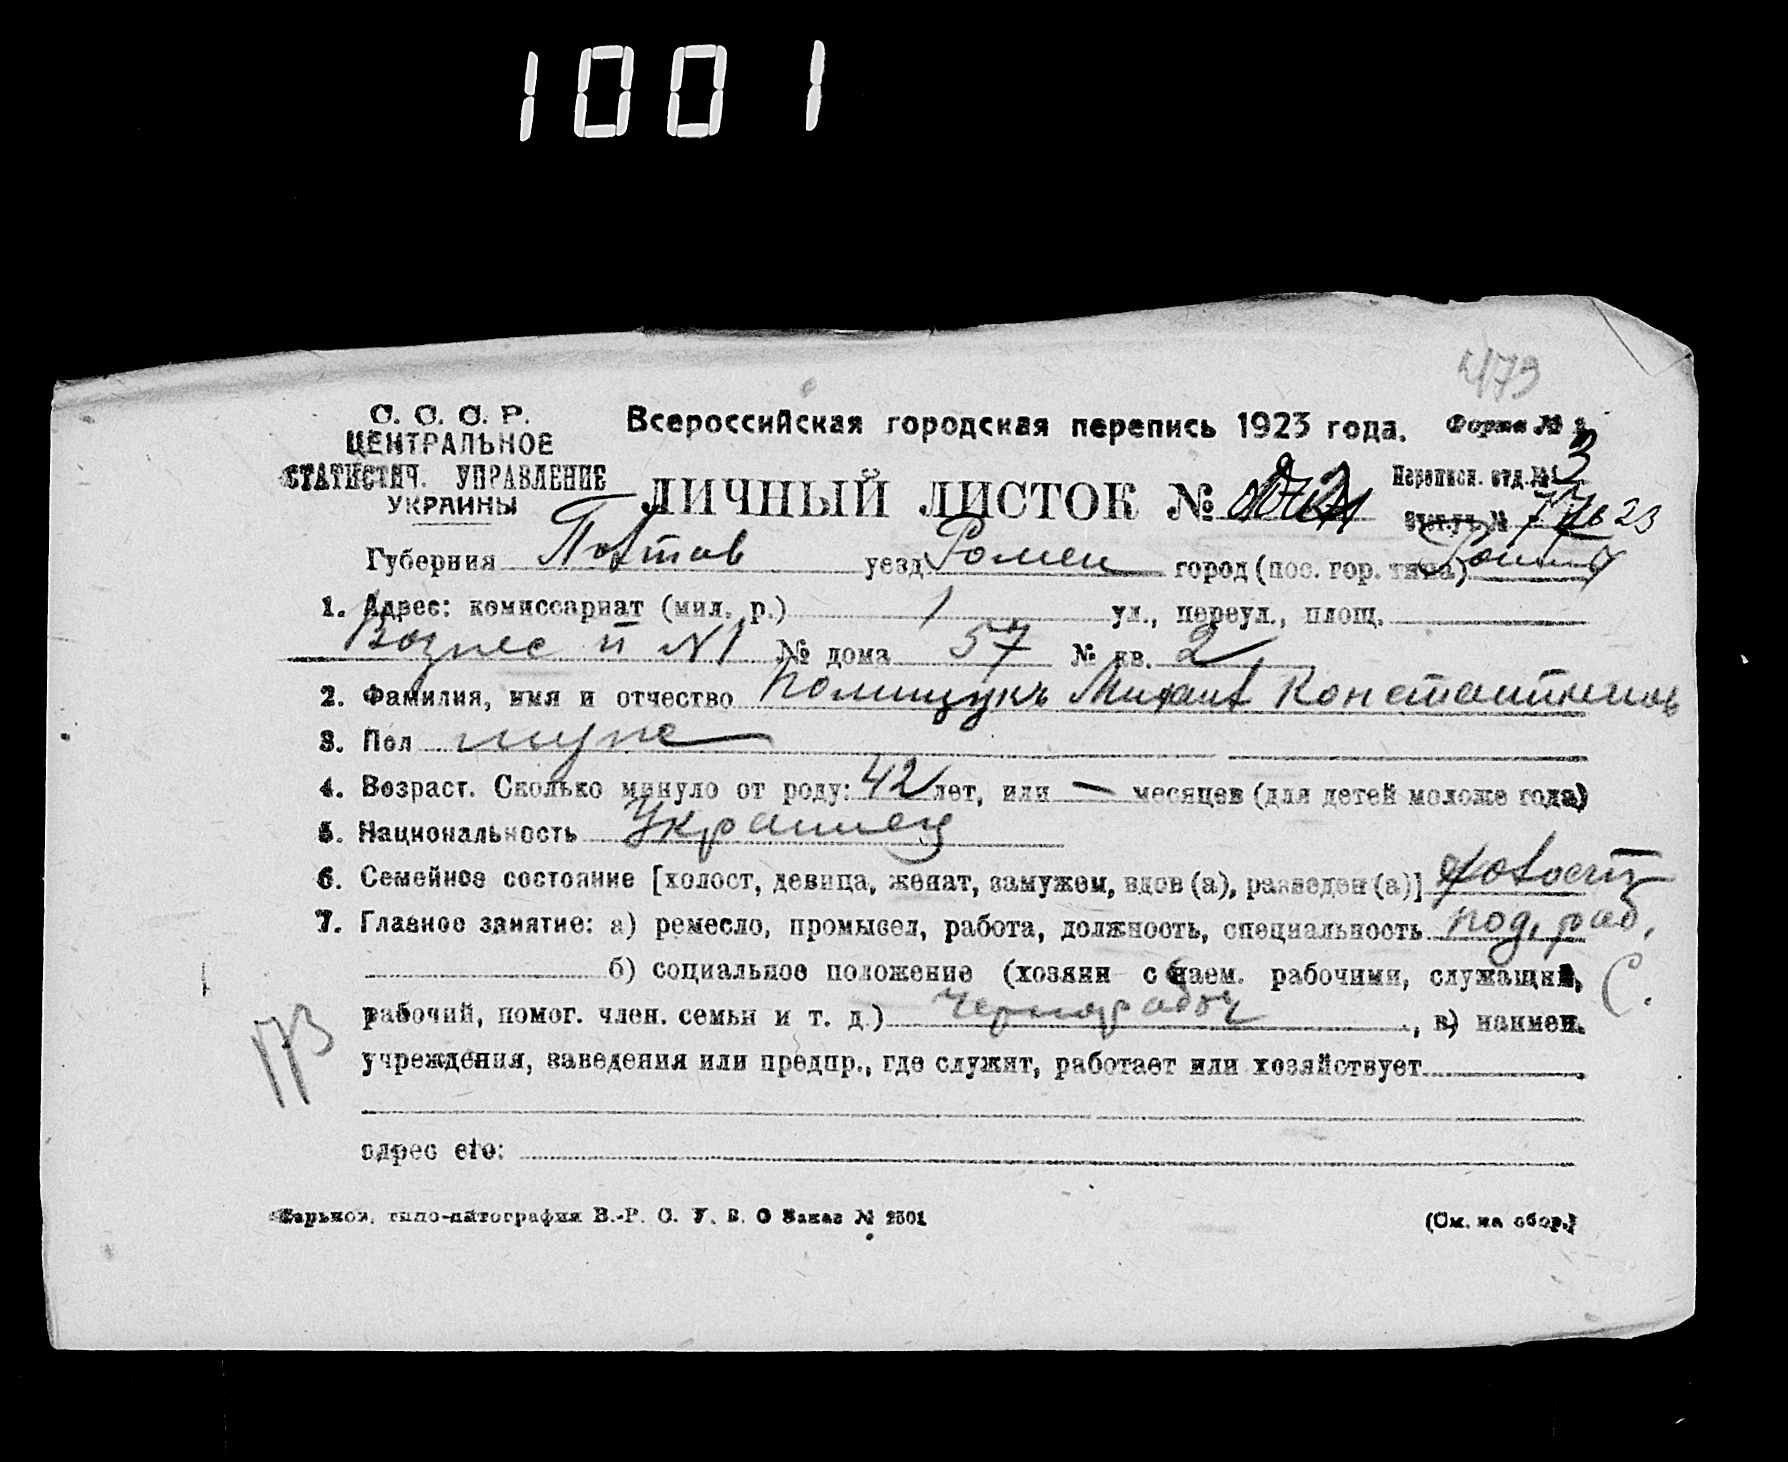 1001
473
С. С. С. Р.
ЦЕНТРАЛЬНОЕ
СТАТИСТИЧ. УПРАВЛЕНИЕ
УКРАИНЫ
Всероссийская городская перепись 1923 года. Форма №
ЛИЧНЫЙ ЛИСТОК № Переписн. отд. № 3
Губерния Полтав уезд Ромен город (пос. гор. типа) Ромны
1. Адрес: комиссариат (мил. р.) 1 ул., переул., площ.
Вознес п N1 № дома 57 № кв. 2
2. Фамилия, имя и отчество Полищукъ Михаил Константинов
3. Пол муж
4. Возраст. Сколько минуло от роду: 42 лет, или — месяцев (для детей моложе года)
5. Национальность Украинец
6. Семейное состояние [холост, девица, женат, замужем, вдов (а), разведен (а)] холост
7. Главное занятие: а) ремесло, промысел, работа, должность, специальность под. раб.
б) социальное положение (хозяин с наем. рабочими, служащий,
рабочий, помог. член. семьи и т. д.) чернорабоч, в) наимен.
173
учреждения, заведения или предпр., где служит, работает или хозяйствует
адрес его:
Харьков, типо-литография В.-Р. С. У. В. О Заказ № 2501
(См. на обор.)